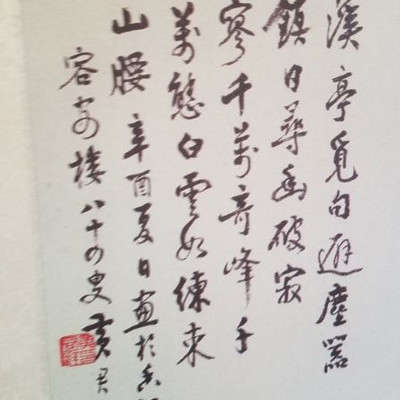 溪亭覓句避塵囂
鎮日尋幽破寂
寥千萬奇峰千
萬態白雲如練束
山腰辛酉夏日畫於香
容安樓八十四叟黃君